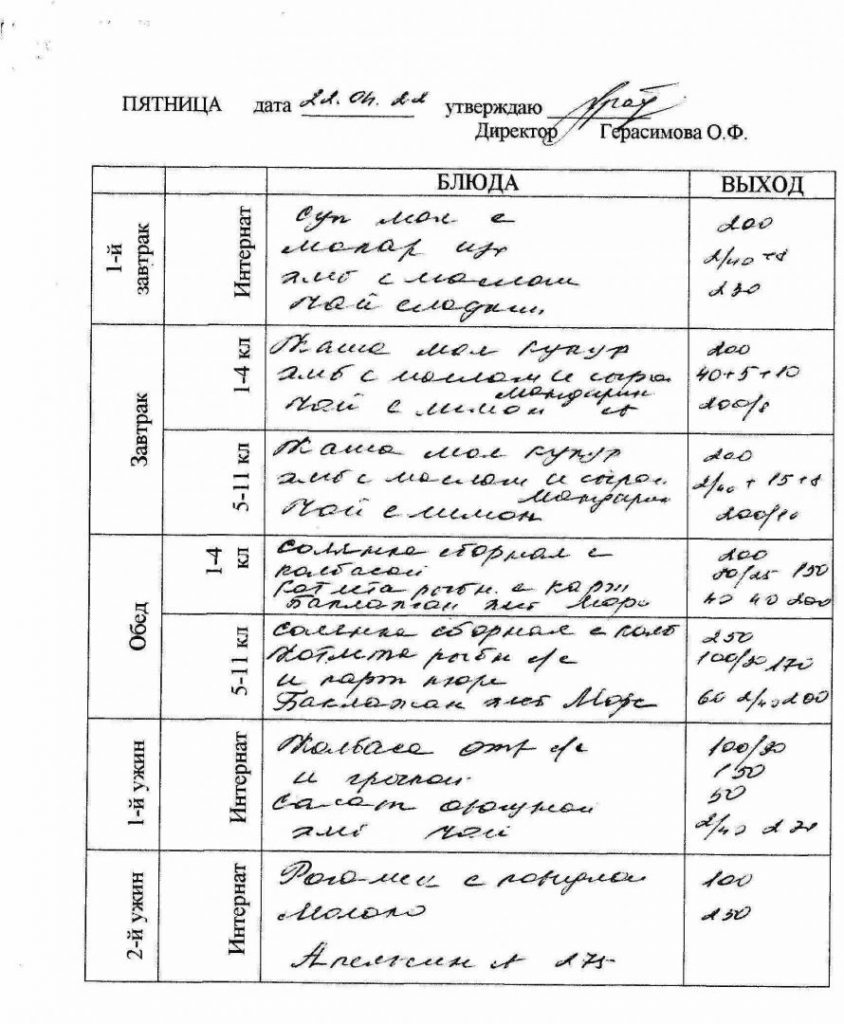 ПЯТНИЦА дата 22.04.22 утверждаю
Директор Герасимова О.Ф.
БЛЮДА ВЫХОД
1-й завтрак Интернат
суп мол с 200
макар изд 2/40 +8
хлеб с маслом 230
чай сладкий
Завтрак
1-4 кл
Каша мол кукур 200
хлеб с маслом и сыром 40+5+10
мандарин
Чай с лимон 200/8
5-11 кл
Каша мол кукур 200
хлеб с маслом и сыром 2/40 + 15+8
мандарин
Чай с лимон 200/10
Обед
1-4 кл
солянка сборная с 200
колбасой 80/25 150
Котлета рыбн. с карт
Баклажан хлеб Морс 40 40 200
5-11 кл
солянка сборная с колб 250
Котлета рыбн с/с 100/30 170
и карт пюре
Баклажан хлеб Морс 60 2/40 200
1-й ужин Интернат
Колбаса отв с/с 100/30
и гречкой 150
салат 50
хлеб чай 2/40
2-й ужин Интернат
с повидлом 100
Молоко 250
Апельсин 275